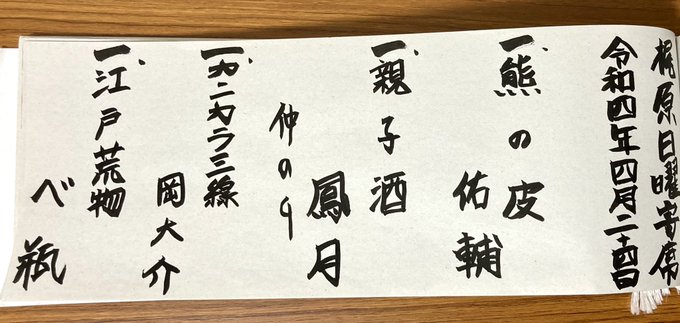 梶原日曜寄席
令和四年四月二十四日
一、熊の皮
佑輔
一、親子酒
鳳月
仲入り
一、カンカラ三線
岡大介
一、江戸荒物
べ瓶